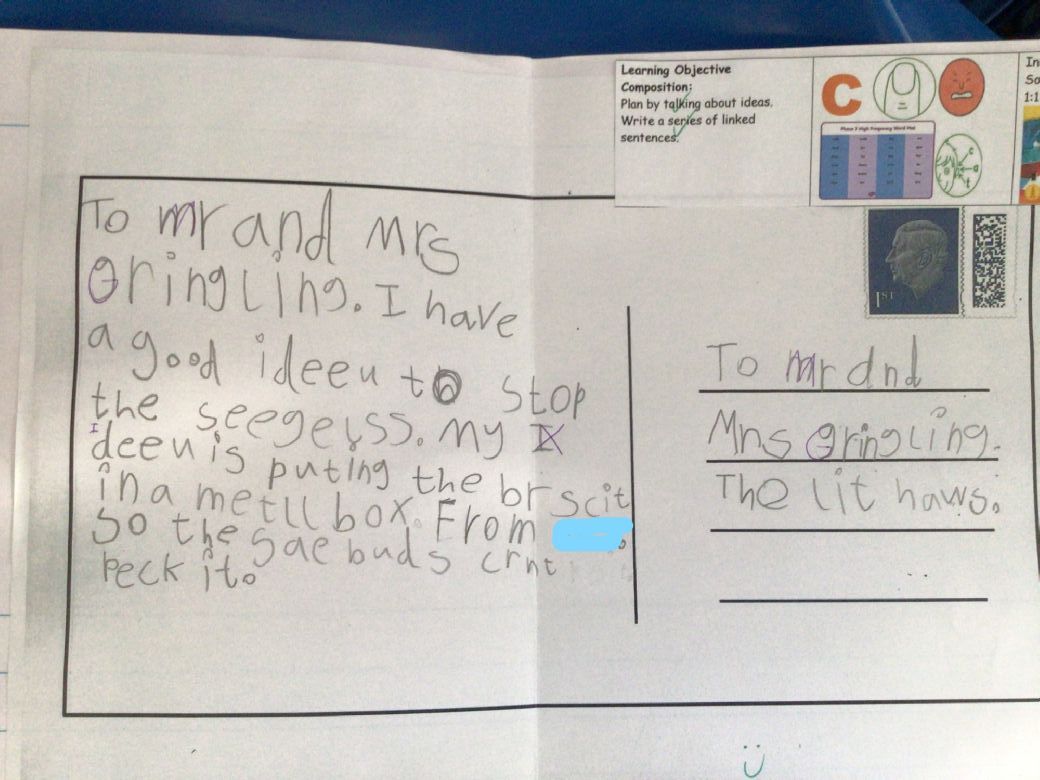 Learning Objective
Composition:
Plan by talking about ideas.
Write a series of linked
sentences.
C
Phase 3 High Frequency Word Mat
In
So
1:1
1ST
To mr and Mrs
Gringling. I have
a good ideeu to stop
the seegeiss. My
Ideeu is puting the br scit
in a metll box. From
So the Sae buds crnt
Peck it.
To mr and
Mrs Gringling.
The lit haws.